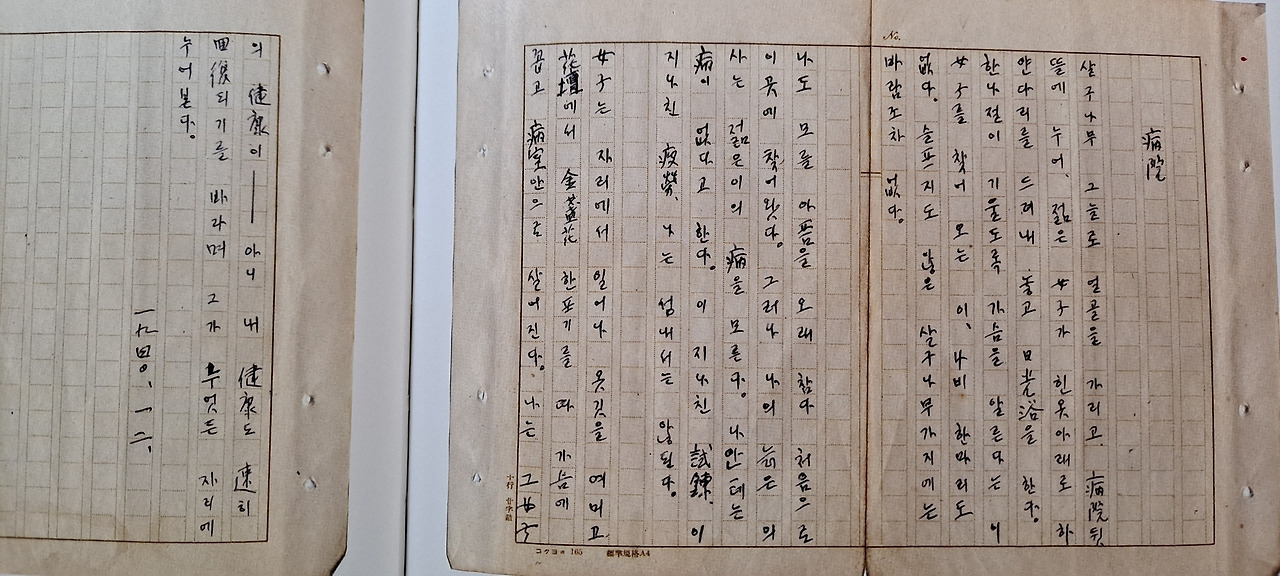 No.
病院
살구나무 그늘로 얼골을 가리고. 病院뒷
뜰에 누어, 젊은 女子가 힌옷아래로 하
얀다리를 드려내 놓고 日光浴을 한다.
한나절이 기울도록 가슴을 알른다는 이
女子를 찾어 오는 이, 나비 한마리도
없다. 슬프지도 않은 살구나무가지에는
바람조차 없다.
나도 모를 아픔을 오래 참다 처음으로
이곳에 찾어왔다. 그러나 나의 늙은 의
사는 젊은이의 病을 모른다. 나안테는
病이 없다고 한다. 이 지나친 試鍊, 이
지나친 疲勞, 나는 성내서는 않된다.
女子는 자리에서 일어나 옷깃을 여미고
花壇에서 金盞花 한포기를 따 가슴에
꼽고 病室안으로 살어진다. 나는 그女子
十行 廿字詰
コクヨの 165 標準規格A4
의 健康이—— 아니 내 健康도 速히
回復되기를 바라며 그가 누엇든 자리에
누어본다.
一九四〇、一二、